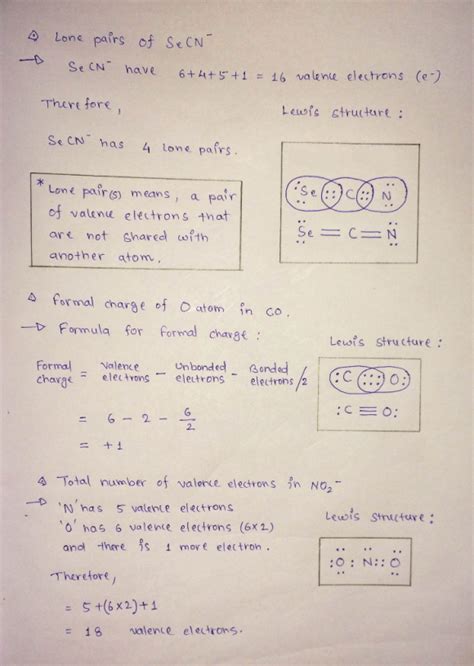 Lone pairs of SeCN⁻
→ SeCN⁻ have 6+4+5+1 = 16 valence electrons (e⁻)
Therefore,
SeCN⁻ has 4 lone pairs.
* Lone pair(s) means, a pair
of valence electrons that
are not shared with
another atom.
Lewis structure :
:Se :: C :: N:
Se = C = N
Formal charge of O atom in CO.
→ Formula for formal charge :
Formal charge = Valence electrons - Unbonded electrons - Bonded electrons/2
= 6 - 2 - 6/2
= +1
Lewis structure :
:C ::: O:
:C ≡ O:
Total number of valence electrons in NO₂⁻
→ 'N' has 5 valence electrons
'O' has 6 valence electrons (6×2)
and there is 1 more electron.
Therefore,
= 5+(6×2)+1
= 18 valence electrons.
Lewis structure :
:O : N :: O